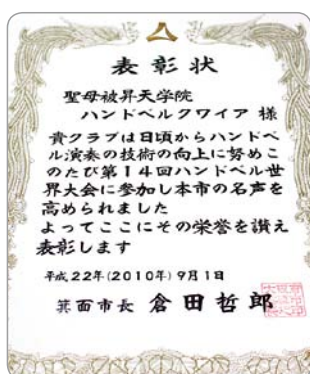 表彰状
聖母被昇天学院
ハンドベルクワイア 様
貴クラブは日頃からハンドベ
ル演奏の技術の向上に努めこ
のたび第14回ハンドベル世
界大会に参加し本市の名声を
高められました
よってここにその栄誉を讃え
表彰します
平成22年(2010年)9月1日
箕面市長 倉田哲郎